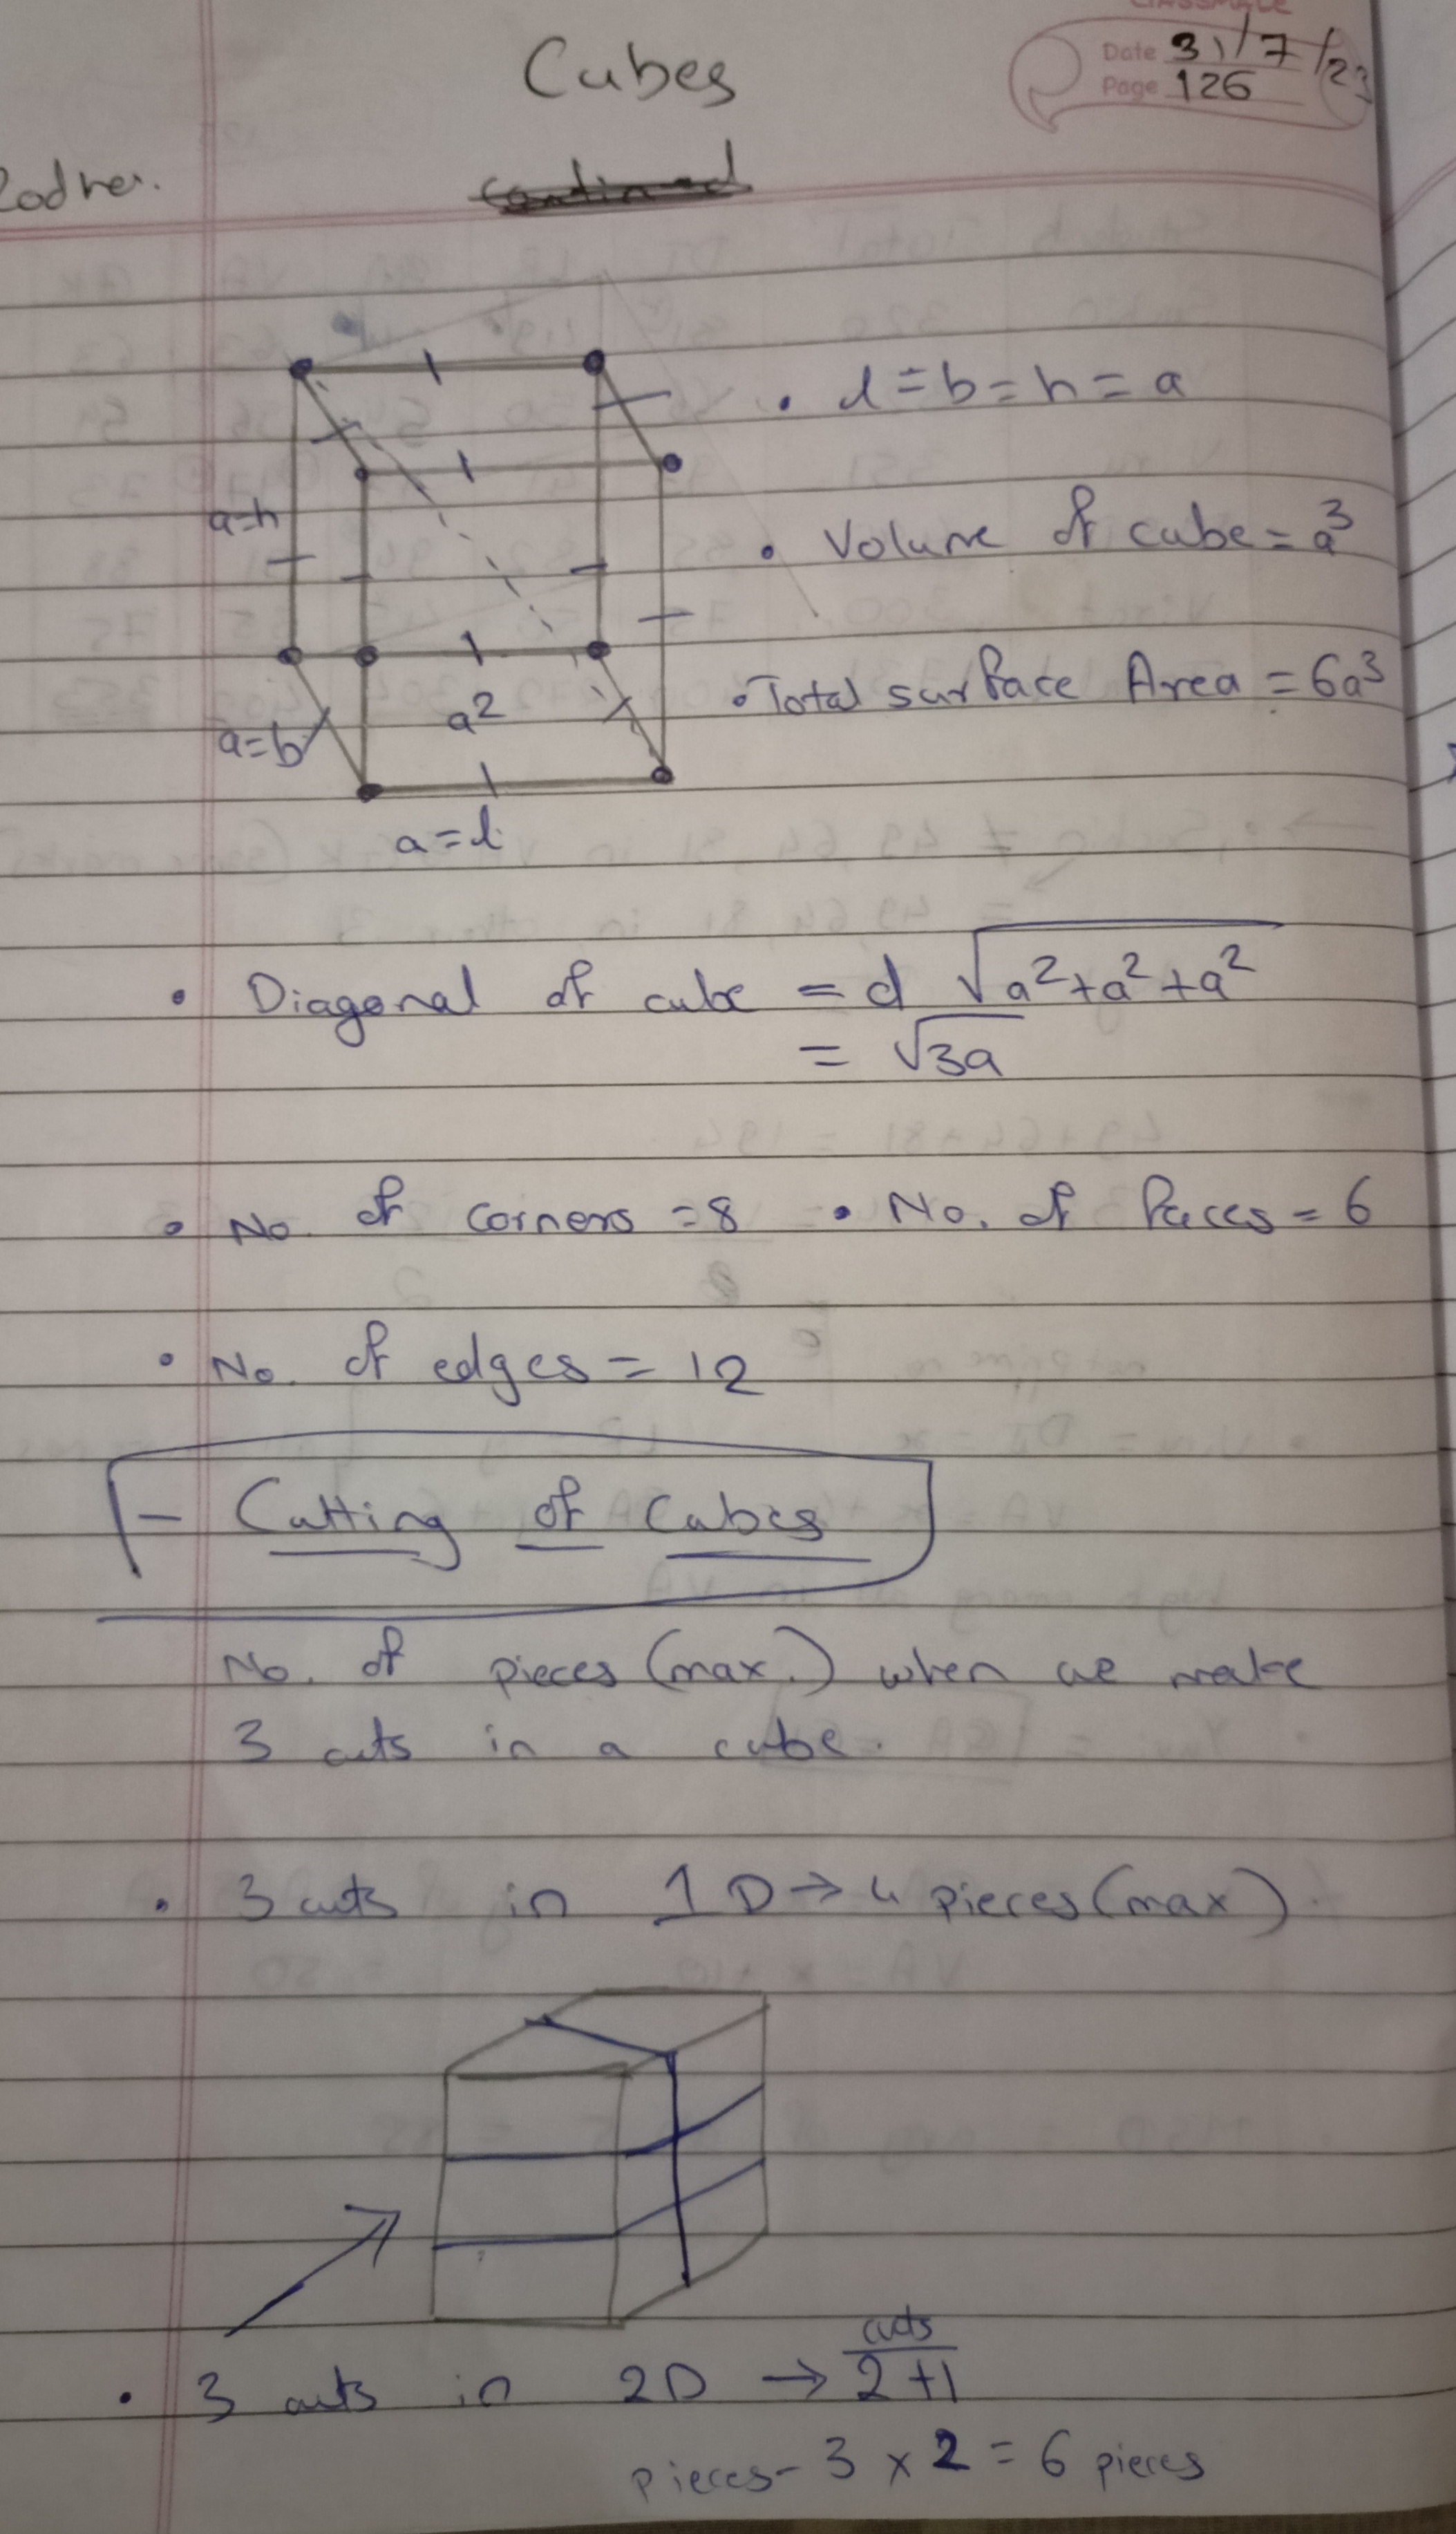 classmate
Date 31/7/23
Page 126
Cubes
a=h
a=b
a²
a=l
• l=b=h=a
• Volume of cube = a³
• Total surface Area = 6a³
• Diagonal of cube = d √a²+a²+a²
= √3a
• No. of corners =8 • No. of faces = 6
• No. of edges = 12
- Cutting of Cubes
No. of pieces (max.) when we make
3 cuts in a cube.
• 3 cuts in 1D → 4 pieces (max)
cuts
• 3 cuts in 2D → 2+1
pieces- 3 x 2 = 6 pieces